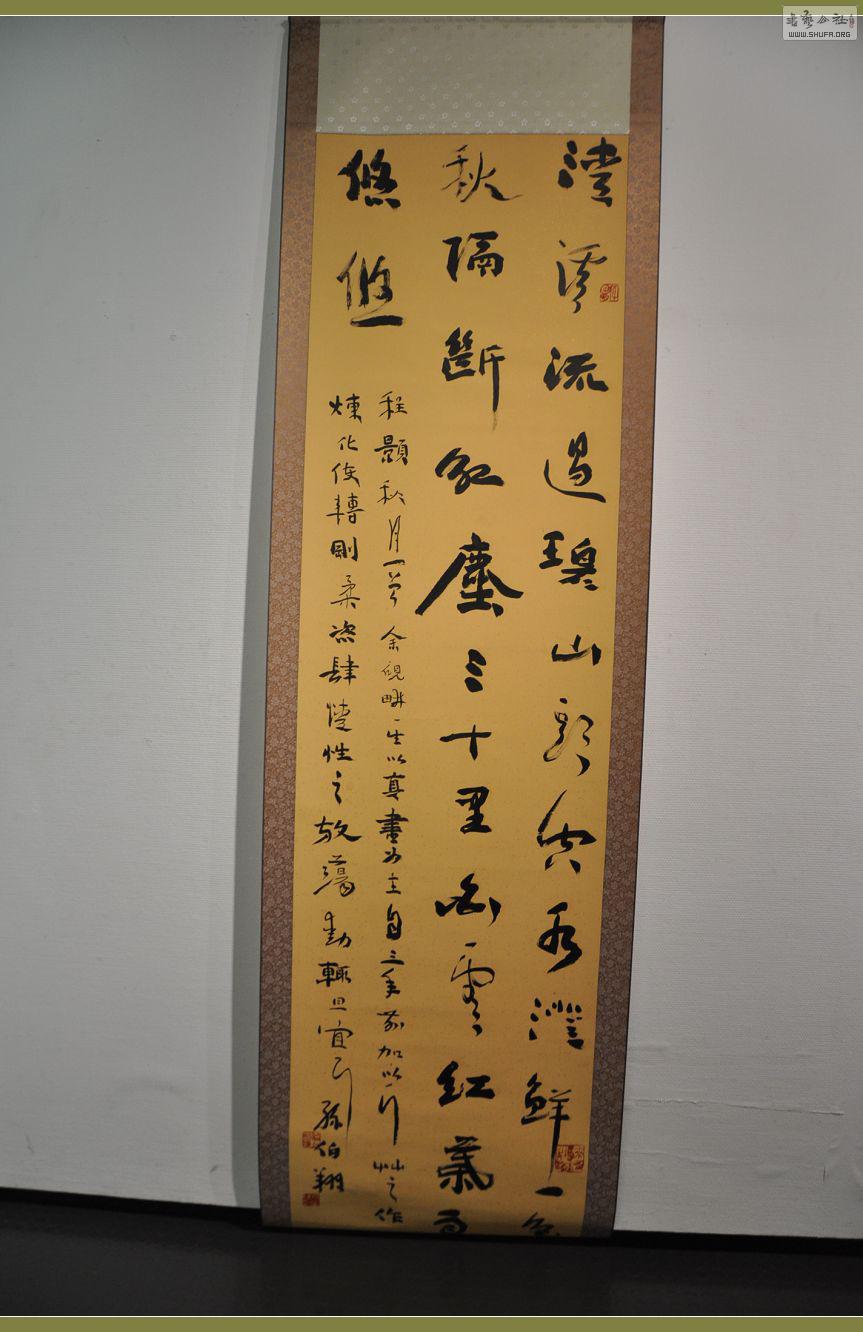 清溪流過碧山頭空水澄鮮一色
秋隔斷紅塵三十里白雲紅葉兩
悠悠
程顥秋月一首余硯畊一生以真書為主自三年前加以行艸之作
煉化使轉剛柔恣肆情性之放蕩動輒宜孫伯翔
書藝公社
WWW.SHUFA.ORG